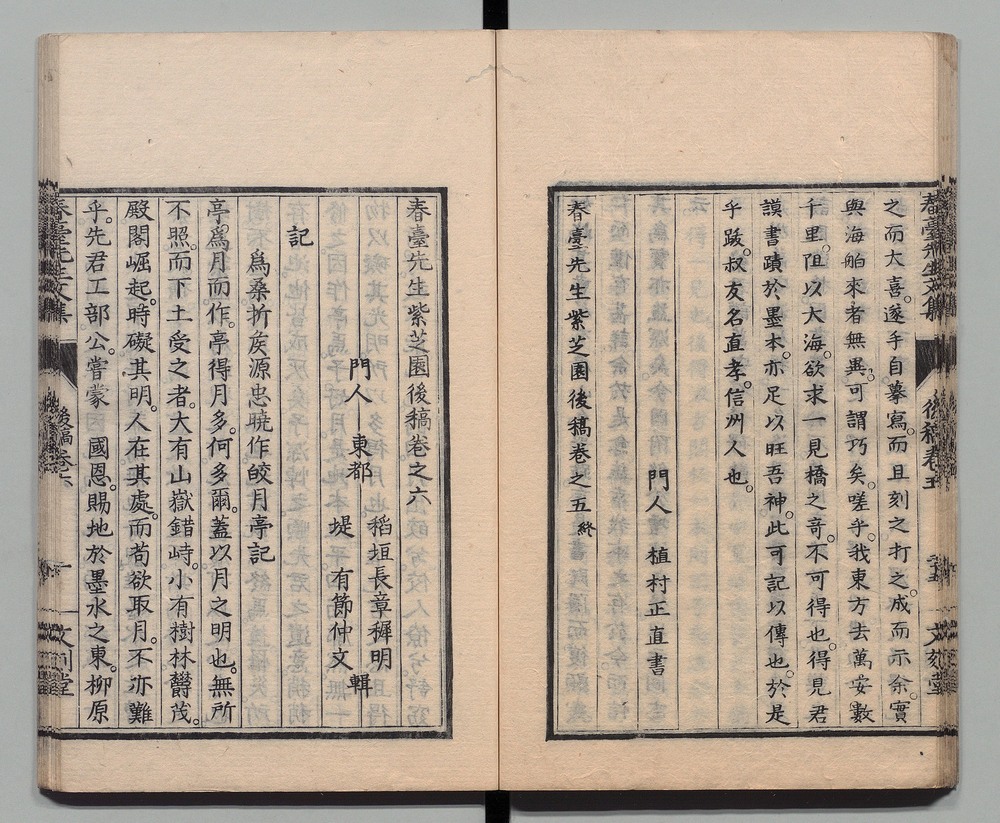 之而大喜。遂手自摹寫。而且刻之打之。成而示余。實
與海舶來者無異。可謂巧矣。嗟乎。我東方去萬安數
千里。阻以大海。欲求一見橋之奇。不可得也。得見君
謨書蹟於墨本。亦足以旺吾神。此可記以傳也。於是
乎跋。叔友名直孝。信州人也。
門人 植村正直書
春臺先生紫芝園後稿卷之五終
春臺先生紫芝園後稿卷之六
稻垣長章穉明
門人 東都
堤 有節仲文 輯
記
爲桑折矦源忠曉作皎月亭記
亭。爲月而作。亭得月多。何多爾。蓋以月之明也。無所
不照。而下土受之者。大有山嶽錯峙。小有樹林欝茂。
殿閣崛起。時礙其明。人在其處。而苟欲取月。不亦難
乎。先君工部公。嘗蒙 國恩。賜地於墨水之東。柳原
春臺先生文集
後稿卷六
一